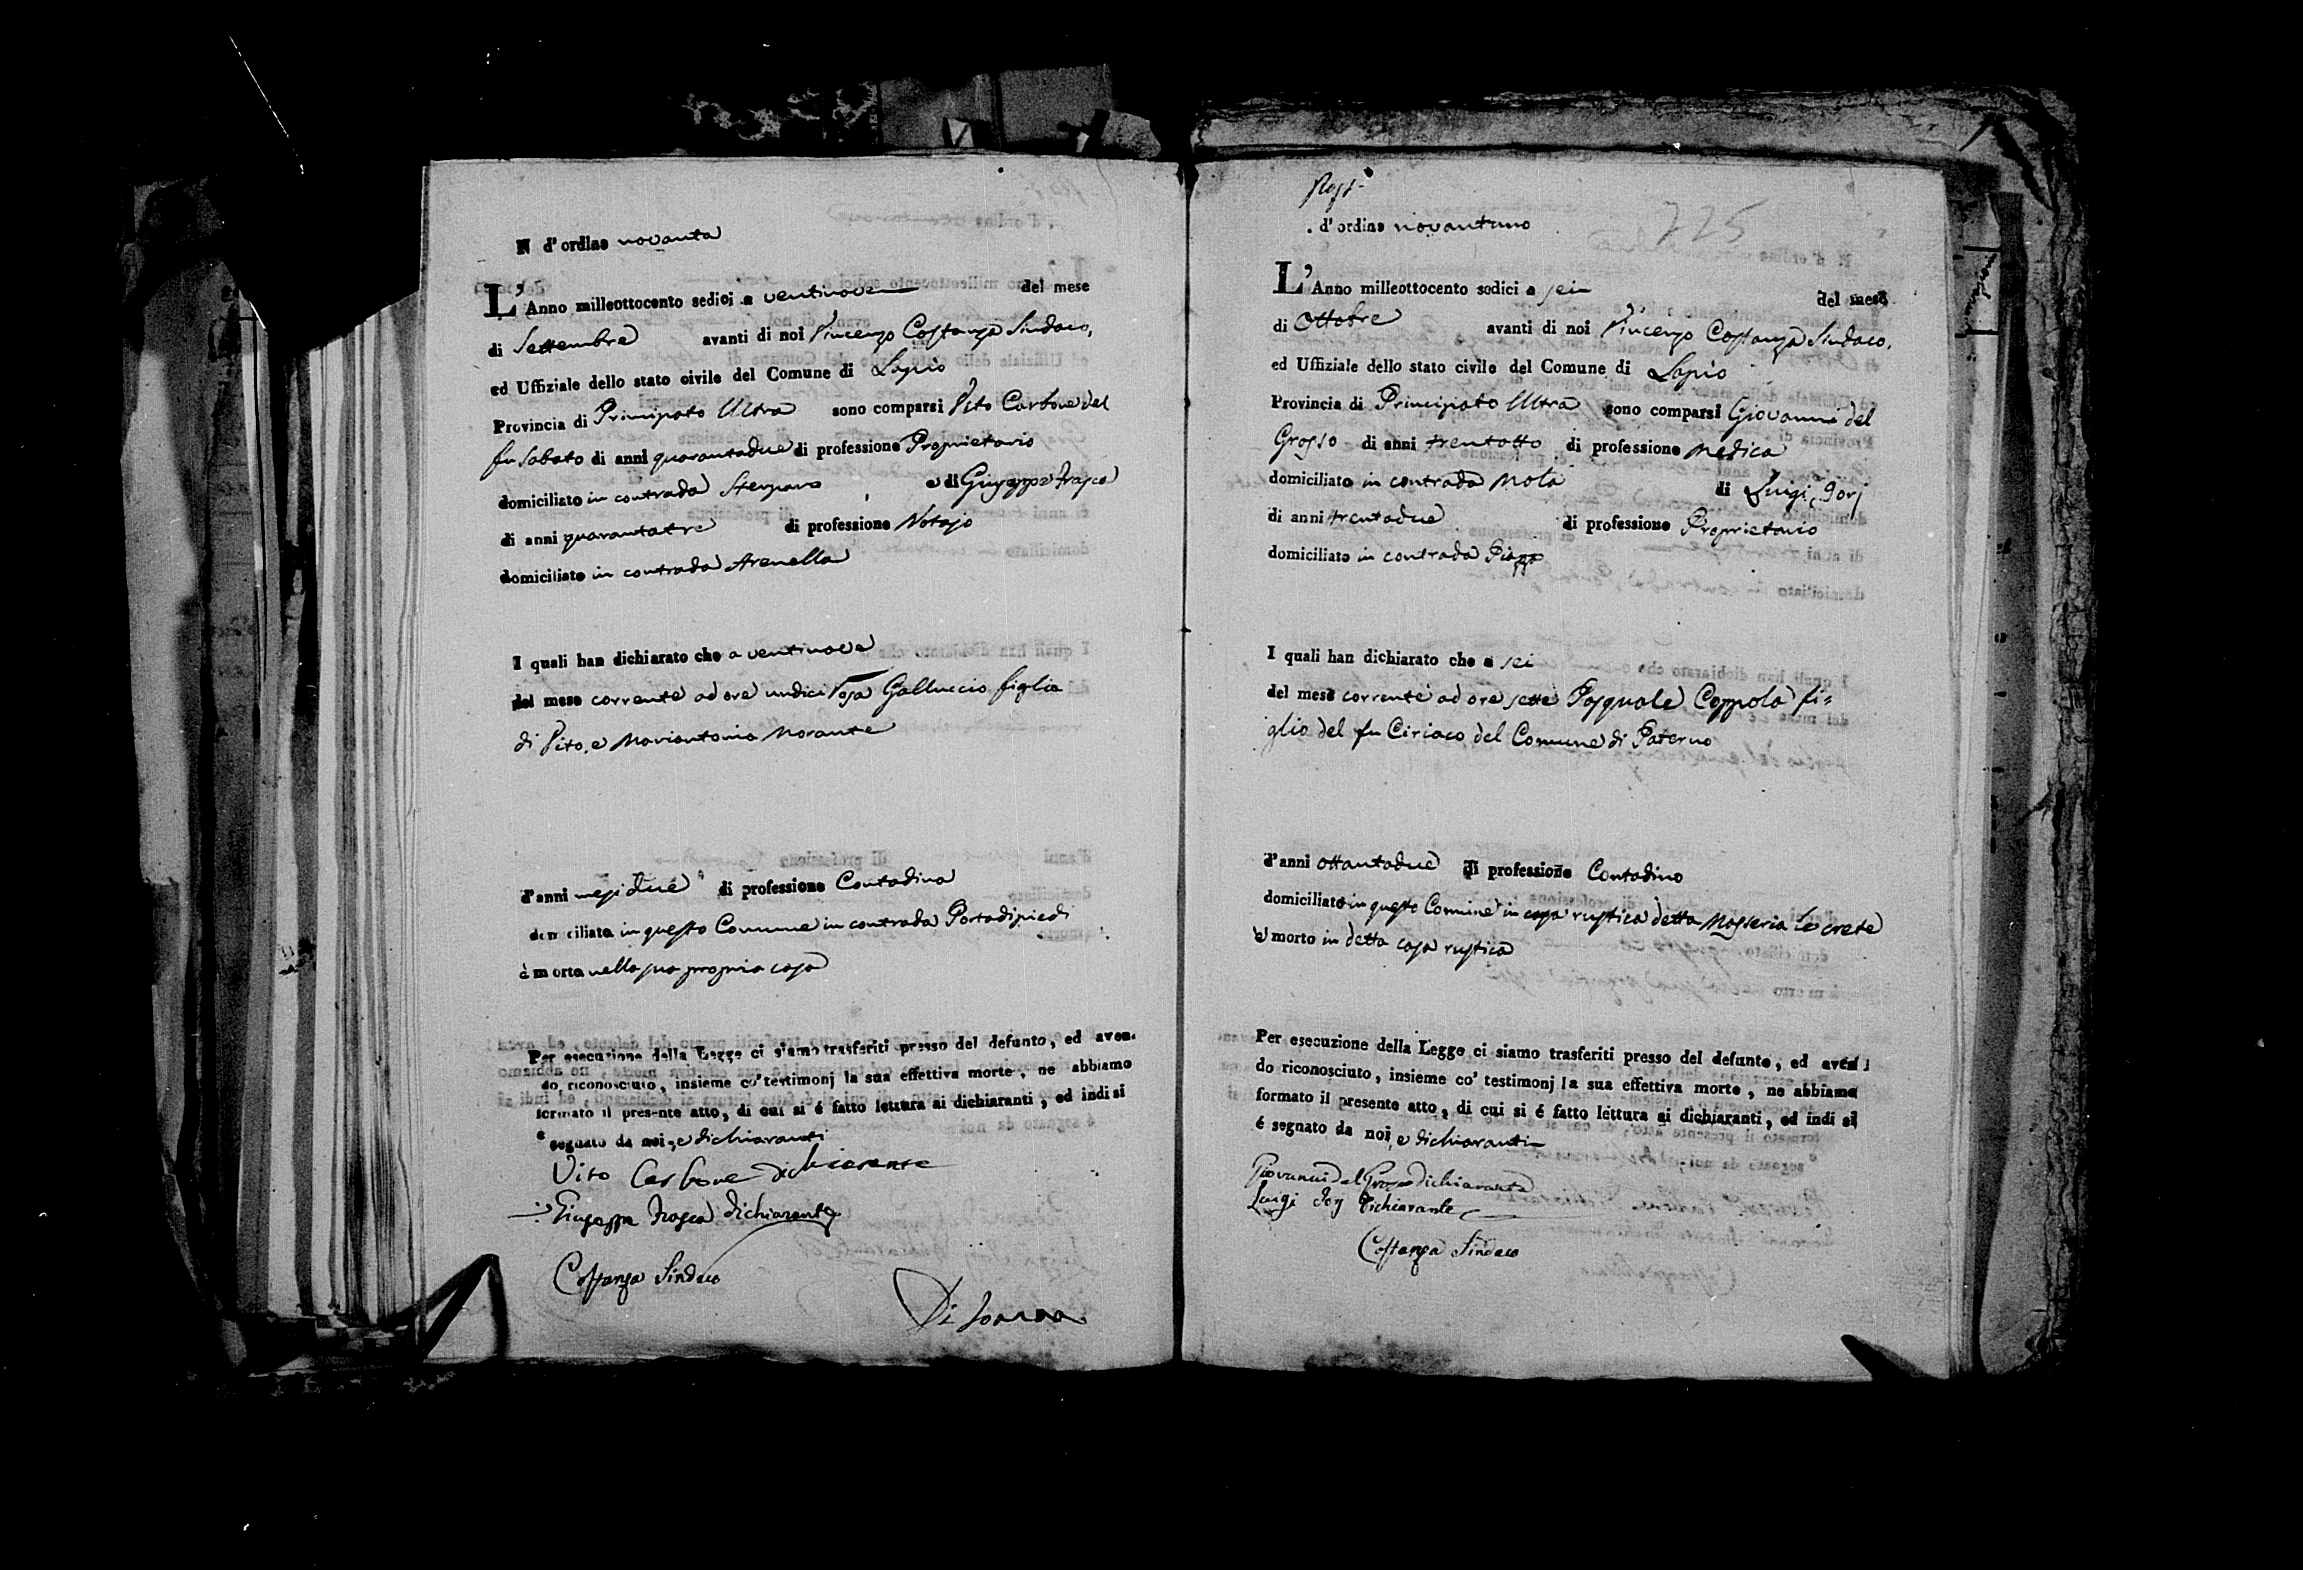 N d'ordine novanta
L'Anno milleottocento sedici a ventinove del mese
di Settembre avanti di noi Vincenzo Costanza Sindaco,
ed Uffiziale dello stato civile del Comune di Lapio
Provincia di Principato Ultra sono comparsi Vito Carbone del
fu Sabato di anni quarantadue di professione Proprietario
domiciliato in contrada e di Giuseppe Frasca
di anni quarantatre di professione Notajo
domiciliato in contrada Arenella
I quali han dichiarato che a ventinove
del mese corrente ad ore undici Rosa Galluccio figlia
di Vito, e Mariantonia Morante
d'anni mesi due di professione Contadina
domiciliata in questo Comune in contrada Portadipiedi
è morta nella sua propria casa
Per esecuzione della Legge ci siamo trasferiti presso del defunto, ed aven-
do riconosciuto, insieme co' testimonj la sua effettiva morte, ne abbiamo
formato il presente atto, di cui si é fatto lettura ai dichiaranti, ed indi si
e segnato da noi, e dichiaranti
Vito Carbone dichiarante
Giuseppe Frasca dichiarante
Costanza Sindaco
Di Ioanna
d'ordine novantuno
225
L'Anno milleottocento sedici a sei del mese
di Ottobre avanti di noi Vincenzo Costanza Sindaco,
ed Uffiziale dello stato civile del Comune di Lapio
Provincia di Principato Ultra sono comparsi Giovanni del
Grosso di anni trentotto di professione Medico
domiciliato in contrada Mola di Luigi Iorj
di anni trentadue di professione Proprietario
domiciliato in contrada Piazza
I quali han dichiarato che a sei
del mese corrente ad ore sette Pasquale Coppola fi=
glio del fu Ciriaco del Comune di Paterno
d'anni ottantadue di professione Contadino
domiciliato in questo Comune in casa rustica detta Masseria le crete
è morto in detta casa rustica
Per esecuzione della Legge ci siamo trasferiti presso del defunto, ed aven
do riconosciuto, insieme co' testimonj la sua effettiva morte, ne abbiamo
formato il presente atto, di cui si é fatto lettura ai dichiaranti, ed indi si
é segnato da noi, e dichiaranti
Giovanni del Grosso dichiarante
Luigi Iorj dichiarante
Costanza Sindaco